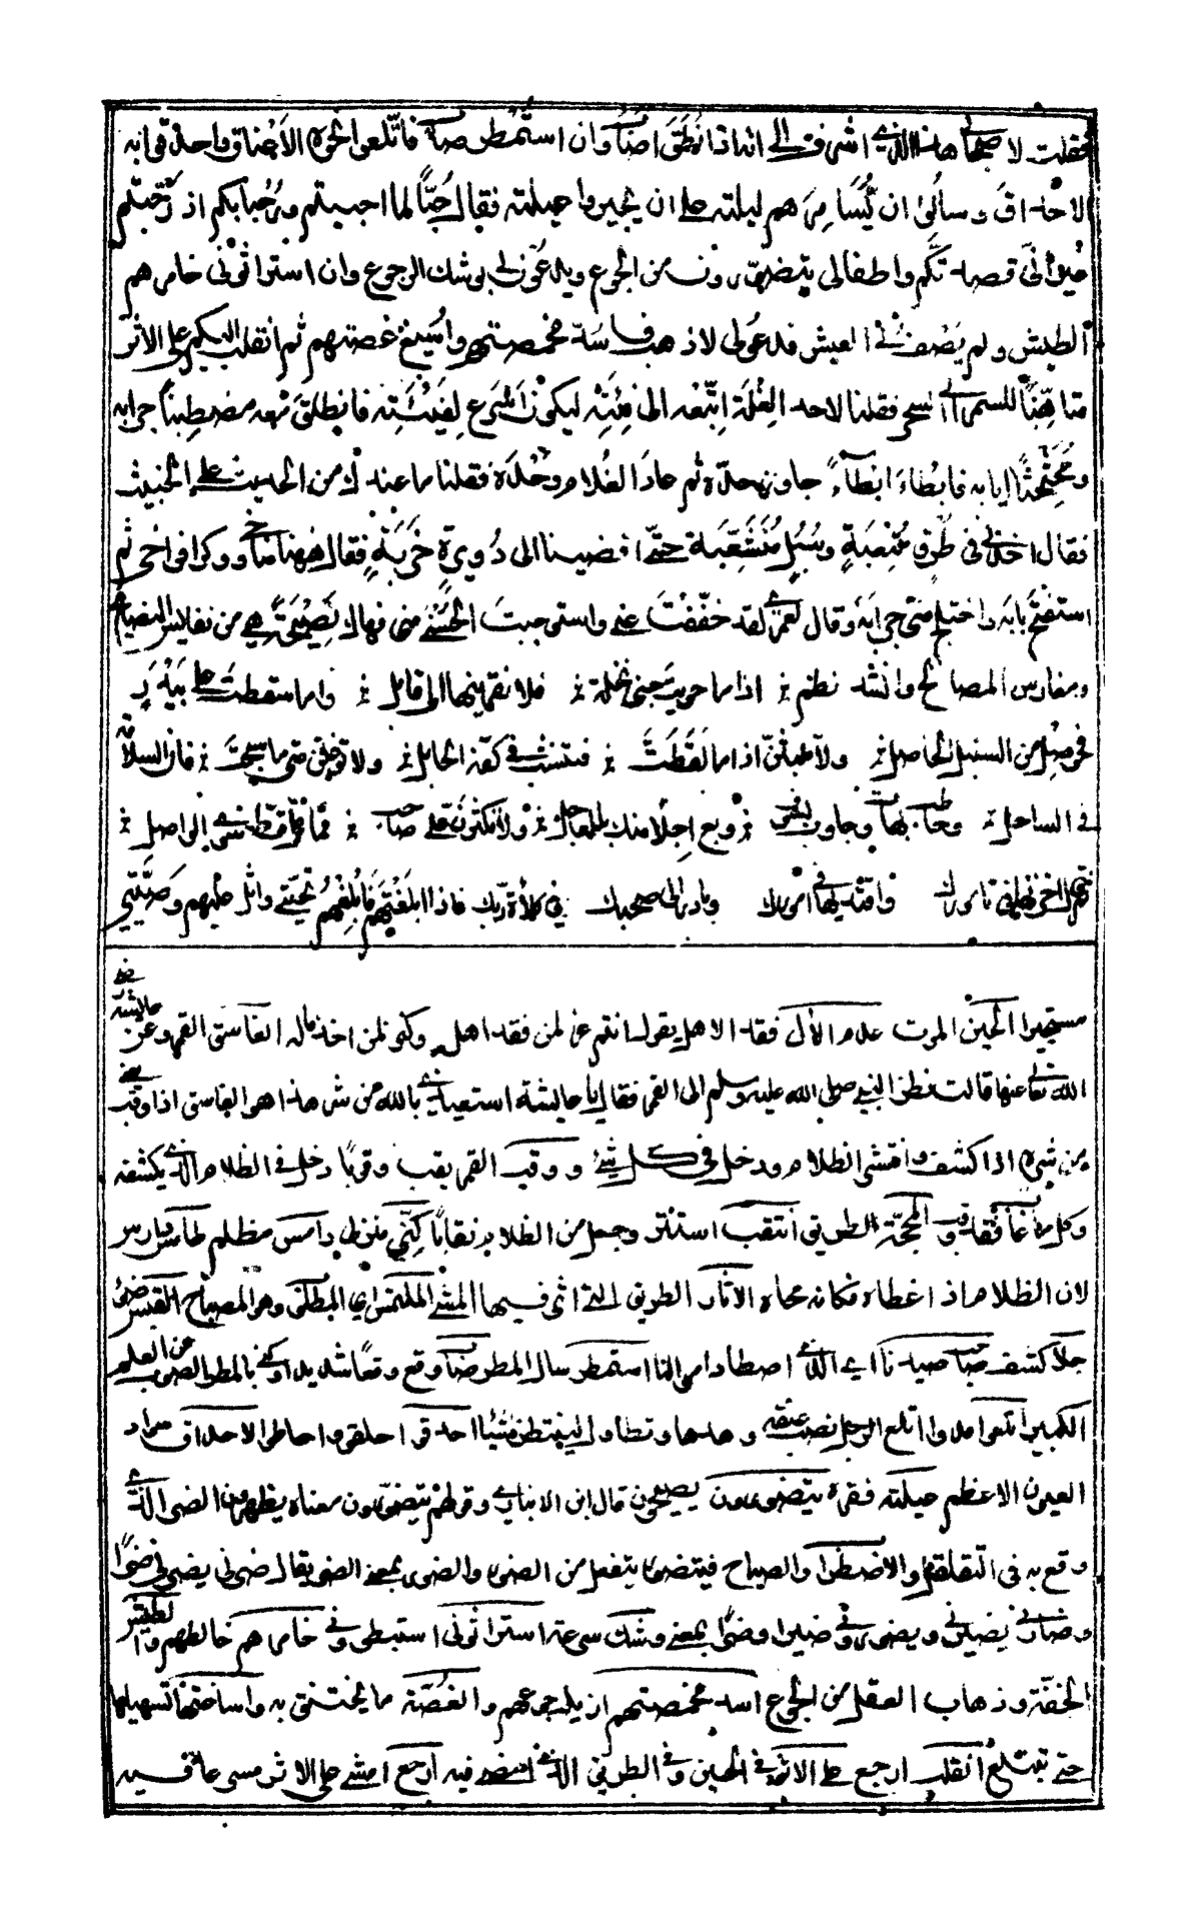 فقلت لاصحابي هذا الذي اشرف الى انه اذا نطق اصاب وان استمطر صاب فاتلعوا نحوه الاعناق واحدقوا به
الاحداق وسألوه ان يسامرهم ليلته على ان يجيروا عيلته فقال حبا لما احببتم ورحبا بكم اذ رحبتم
غير أني قصدتكم واطفالي يتضورون من الجوع ويدعون لي بوشك الرجوع وان استراثوني خامرهم
الطيش ولم يصف لهم العيش فدعوني لاذهب فاسد مخمصتهم واسيغ غصتهم ثم انقلب اليكم على الاثر
متاهبا للسمر الى السحر فقلنا لاحد الغلمة اتبعه الى فئته ليكون اسرع لفيئته فانطلق معه مضطبنا جرابه
ومحثحثا ايابه فابطاء ابطاء جاوز حده ثم عاد الغلام وحده فقلنا ما عندك من الحديث عن الخبيث
فقال اخذني في طرق متعبة وسبل متشعبة حتى افضينا الى دويرة خربة فقال ههنا مناخي ووكر افراخي ثم
استفتح بابه واختلج مني جرابه وقال لعمري لقد خففت عني واستوجبت الحسنى مني فهاك نصيحة هي من نفايس النصايح
ومغارس المصالح وانشد نظم اذا ما حويت جنى نخلة فلا تقربنها الى قابل واما سقطت على بيدر
فحوصل من السنبل الحاصل ولا تلبثن اذا ما لقطت فتنشب في كفة الحابل ولا توغلن متى ما سبحت فان السلامة
في الساحل وخاطب بهات وجاوب بسوف وبع اجلا منك بالعاجل ولا تكثرن على صاحب فما مل قط سوى الواصل
ثم قال اخزنها في تامورك واقتد بها في امورك وبادر الى صحبك في كلاءة ربك فاذا ابلغتهم فابلغهم تحيتي واتل عليهم وصيتي
مستجيرا الحين الموت علام الأل فقد الاهل يقول انتم عز لمن فقد اهله وكنز لمن اخذ ماله الغاسق القمر وعن عايشة رضي
الله تعالى عنها قالت نظر النبي صلى الله عليه وسلم الى القمر فقال يا عايشة استعيذي بالله من شر هذا هو الغاسق اذا وقب يعني
من شره اذا كشف وافشى الظلام ودخل في كل شئ ووقب القمر يقب وقوبا دخل في الظلام الذي يكشفه
وكل ما غاب فقد وقب المحجة الطريق انتقب استتر وجعل من الظلام نقابا كني منزلي دامس مظلم طامس دارس
لان الظلام اذا غطاه فكانه محاه الاثار الطريق التي اثر فيها المشي الملتمس اي المطلق وهو المصباح القبس ضوء
جلا كشف صاحب صيدنا اي الذي اصطاد اموالنا استمطر سال المطر صاب وقع وقعا شديدا وكني بالمطر الصوب عن العلم
الكبير اتلعوا مدوا اتلع الرجل نصب عنقه ومدها وتطاول لينظر شيئا احدقوا حلقوا واحاطوا الاحداق سواد
العيون الاعظم عيلته فقره يتضورون يصيحون قال ابن الانباري وقولهم يتضورون معناه يظهرون الضر الذي
وقع به في التقلقل والاضطراب والصياح فيتضور يتفعل من الضور والضور بمعنى الضر يقال ضرني يضرني ضرا
وضارني يضيرني ويضورني ضيرا وضورا بمعنى وشك سرعة استراثوني استبطؤني خامرهم خالطهم الطيش
الخفة وذهاب العقل من الجوع اسد مخمصتهم ازيل جوعهم والغصة ما يختنق به واساغتها تسهيلها
حتى تبتلع انقلب ارجع على الاثر في الحين وفي الطريق الذي امضي فيه ارجع امشي على الاثر مسرعا فيه